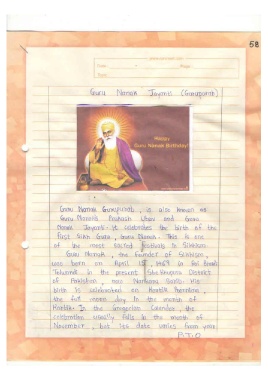 58
Guru Nanak Jayanti (Gurupurab)
Happy
Guru Nanak Birthday!
Guru Nanak Gurupurab, is also known as
Guru Nanak's Prakash Utsav and Guru
Nanak Jayanti. It celebrates the birth of the
first Sikh Guru, Guru Nanak. This is one
of the most sacred festivals in Sikhism.
Guru Nanak, the founder of Sikhism,
was born on April 15, 1469 in Rai Bhoi di
Talwandi in the present Shekhupura District
of Pakistan, now Nankana Sahib. His
birth is celebrated on Kartik Poornima,
the full moon day in the month of
Kartik. In the Gregorian Calendar, the
celebration usually falls in the month of
November, but its date varies from year
P.T.O